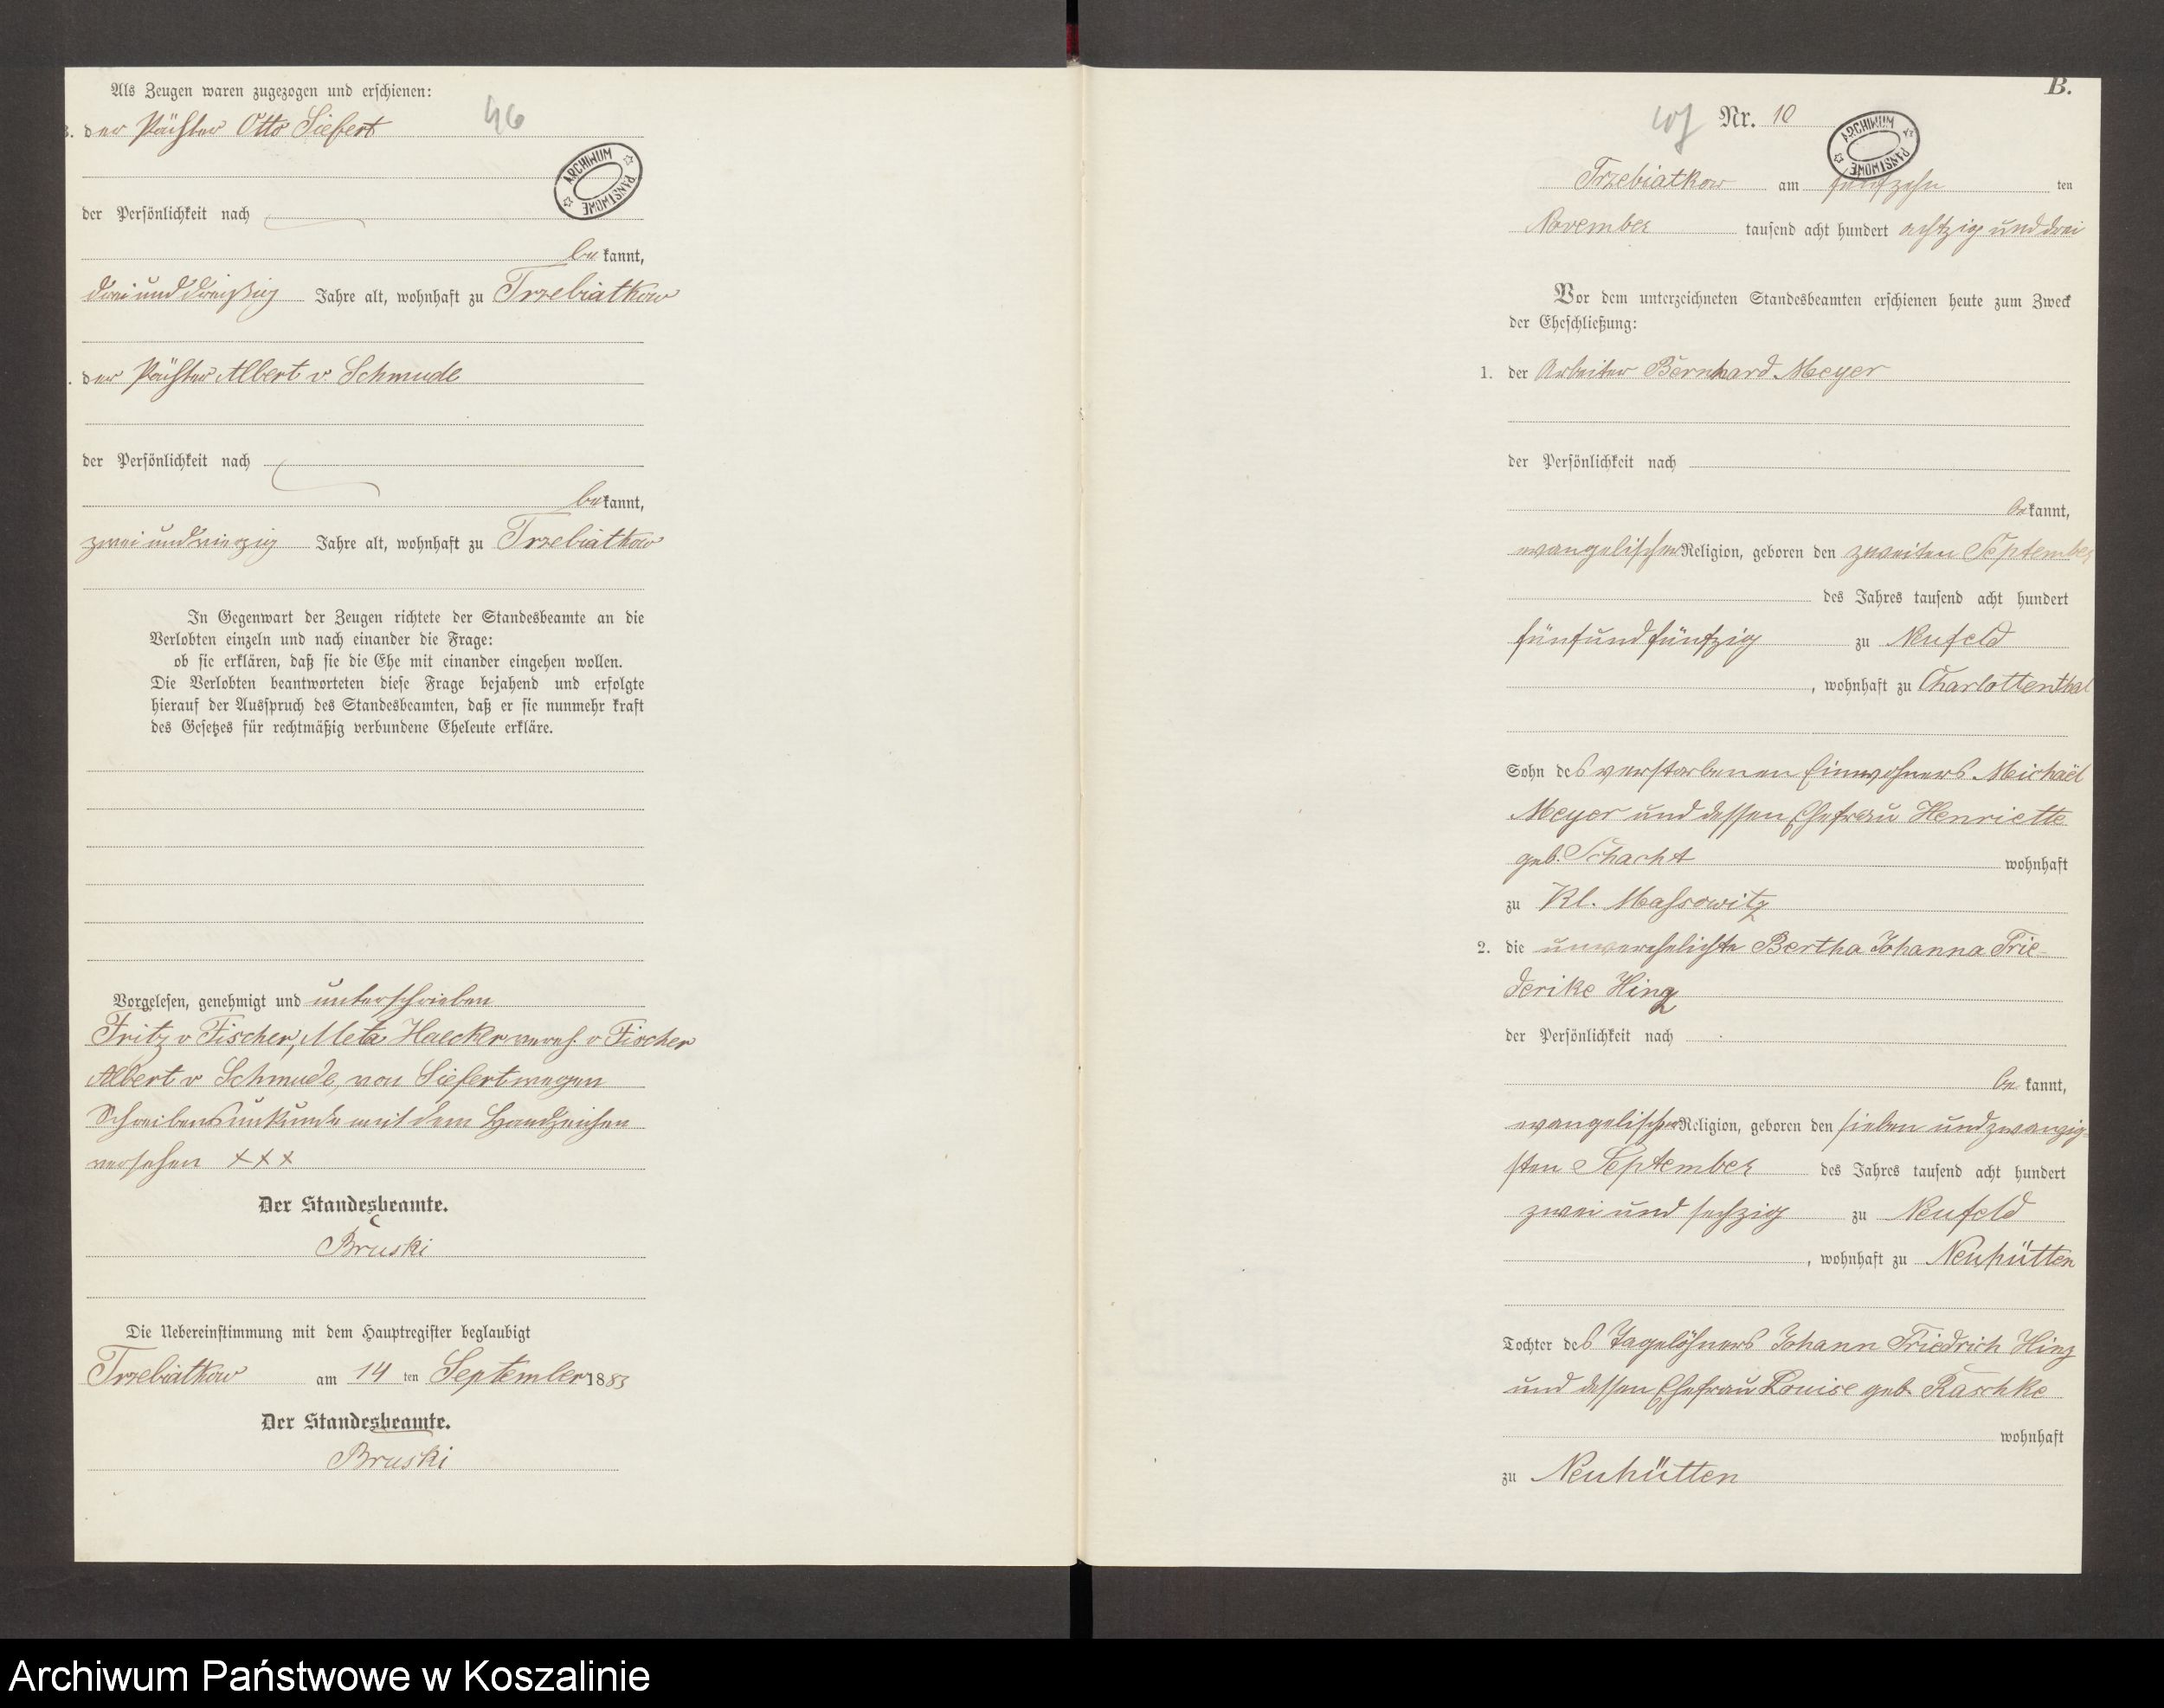 Als Zeugen waren zugezogen und erschienen:
46
3. der Pächter Otto Siefert
ARCHIWUM PAŃSTWOWE
der Persönlichkeit nach
be kannt,
drei und dreißig Jahre alt, wohnhaft zu Trzebiatkow
. der Pächter Albert v. Schmude
der Persönlichkeit nach
be kannt,
zwei und vierzig Jahre alt, wohnhaft zu Trzebiatkow
In Gegenwart der Zeugen richtete der Standesbeamte an die
Verlobten einzeln und nach einander die Frage:
ob sie erklären, daß sie die Ehe mit einander eingehen wollen.
Die Verlobten beantworteten diese Frage bejahend und erfolgte
hierauf der Ausspruch des Standesbeamten, daß er sie nunmehr kraft
des Gesetzes für rechtmäßig verbundene Eheleute erkläre.
Vorgelesen, genehmigt und unterschrieben
Fritz v Fischer, Meta Haecker vereh. v Fischer
Albert v Schmude, von Siefert wegen
Schreibensunkunde mit dem Handzeichen
versehen XXX
Der Standesbeamte.
Bruski
Die Uebereinstimmung mit dem Hauptregister beglaubigt
Trzebiatkow am 14 ten September 1883
Der Standesbeamte.
Bruski
B.
Nr. 10
ARCHIWUM PAŃSTWOWE
Trzebiatkow am fünfzehn ten
November tausend acht hundert achtzig und drei
Vor dem unterzeichneten Standesbeamten erschienen heute zum Zweck
der Eheschließung:
1. der Arbeiter Bernhard Meyer
der Persönlichkeit nach
be kannt,
evangelischer Religion, geboren den zweiten September
des Jahres tausend acht hundert
fünf und fünfzig zu Neufeld
, wohnhaft zu Charlottenthal
Sohn des verstorbenen Einwohners Michael
Meyer und dessen Ehefrau Henriette
geb. Schacht wohnhaft
zu Kl. Massowitz
2. die unverehelichte Bertha Johanna Frie-
derike Hinz
der Persönlichkeit nach
be kannt,
evangelischer Religion, geboren den sieben und zwanzig-
sten September des Jahres tausend acht hundert
zwei und sechzig zu Neufeld
, wohnhaft zu Neuhütten
Tochter des Tagelöhners Johann Friedrich Hinz
und dessen Ehefrau Louise geb. Raschke
wohnhaft
zu Neuhütten
Archiwum Państwowe w Koszalinie